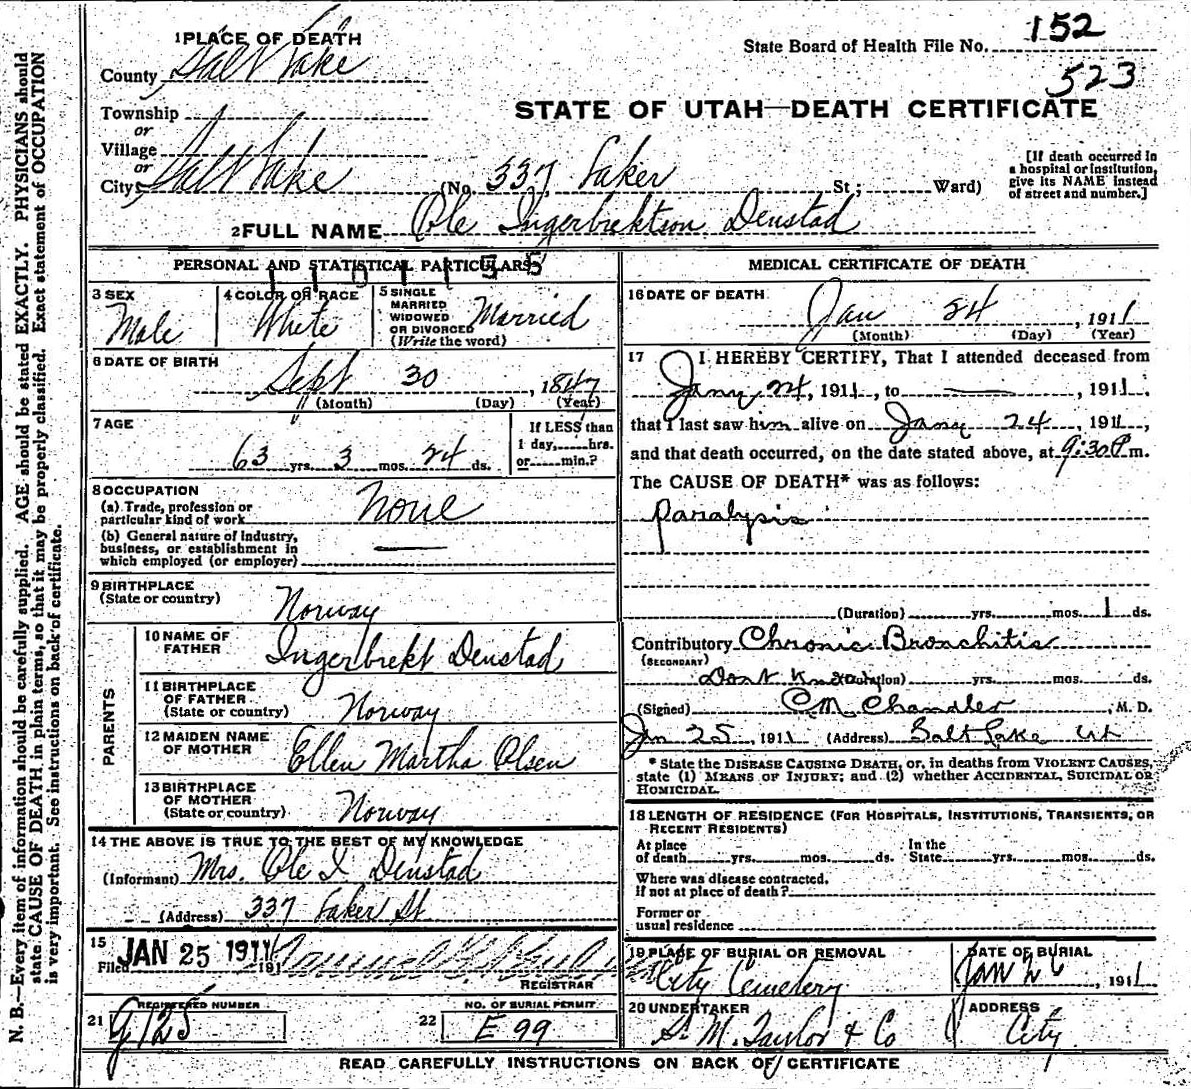 152
State Board of Health File No.
523
1 PLACE OF DEATH
County Salt Lake
STATE OF UTAH—DEATH CERTIFICATE
Township
or
Village
or
City Salt Lake (No. 337, St; Ward)
[If death occurred in
a hospital or institution,
give its NAME instead
of street and number.]
2 FULL NAME Ole Ingerbrektson Denstad
PERSONAL AND STATISTICAL PARTICULARS
1101155
3 SEX Male
4 COLOR OR RACE White
5 SINGLE
MARRIED
WIDOWED
OR DIVORCED
(Write the word) Married
6 DATE OF BIRTH
Sept 30, 1847
(Month) (Day) (Year)
7 AGE
63 yrs. 3 mos. 24 ds.
If LESS than
1 day, hrs.
or min.?
8 OCCUPATION
(a) Trade, profession or
particular kind of work None
(b) General nature of Industry,
business, or establishment in
which employed (or employer) —
9 BIRTHPLACE
(State or country) Norway
PARENTS
10 NAME OF
FATHER Ingerbrekt Denstad
11 BIRTHPLACE
OF FATHER
(State or country) Norway
12 MAIDEN NAME
OF MOTHER Ellen Martha Olsen
13 BIRTHPLACE
OF MOTHER
(State or country) Norway
14 THE ABOVE IS TRUE TO THE BEST OF MY KNOWLEDGE
(Informant) Mrs. Ole I Denstad
(Address) 337 St
15
Filed JAN 25 1911 191
REGISTRAR
REGISTERED NUMBER
21 g125
NO. OF BURIAL PERMIT
22 E 99
MEDICAL CERTIFICATE OF DEATH
16 DATE OF DEATH
Jan 24, 1911
(Month) (Day) (Year)
17 I HEREBY CERTIFY, That I attended deceased from
Jany 24, 1911, to —, 1911.
that I last saw him alive on Jany 24, 1911,
and that death occurred, on the date stated above, at 9:30 P m.
The CAUSE OF DEATH* was as follows:
Paralysis
(Duration) yrs. mos. 1 ds.
Contributory Chronic Bronchitis
(SECONDARY)
Dont Know (Duration) yrs. mos. ds.
(Signed) C.M. Chandler, M. D.
Jan 25, 1911 (Address) Salt Lake Ut
* State the DISEASE CAUSING DEATH, or, in deaths from VIOLENT CAUSES,
state (1) MEANS OF INJURY; and (2) whether ACCIDENTAL, SUICIDAL OR
HOMICIDAL.
18 LENGTH OF RESIDENCE (FOR HOSPITALS, INSTITUTIONS, TRANSIENTS, OR
RECENT RESIDENTS)
At place
of death yrs. mos. ds.
In the
State yrs. mos. ds.
Where was disease contracted,
if not at place of death?
Former or
usual residence
19 PLACE OF BURIAL OR REMOVAL
City Cemetery
DATE OF BURIAL
Jan 26, 1911
20 UNDERTAKER
S. M. Taylor & Co
ADDRESS
City
READ CAREFULLY INSTRUCTIONS ON BACK OF CERTIFICATE
N. B.—Every item of information should be carefully supplied. AGE should be stated EXACTLY. PHYSICIANS should
state CAUSE OF DEATH in plain terms, so that it may be properly classified. Exact statement of OCCUPATION
is very important. See instructions on back of certificate.